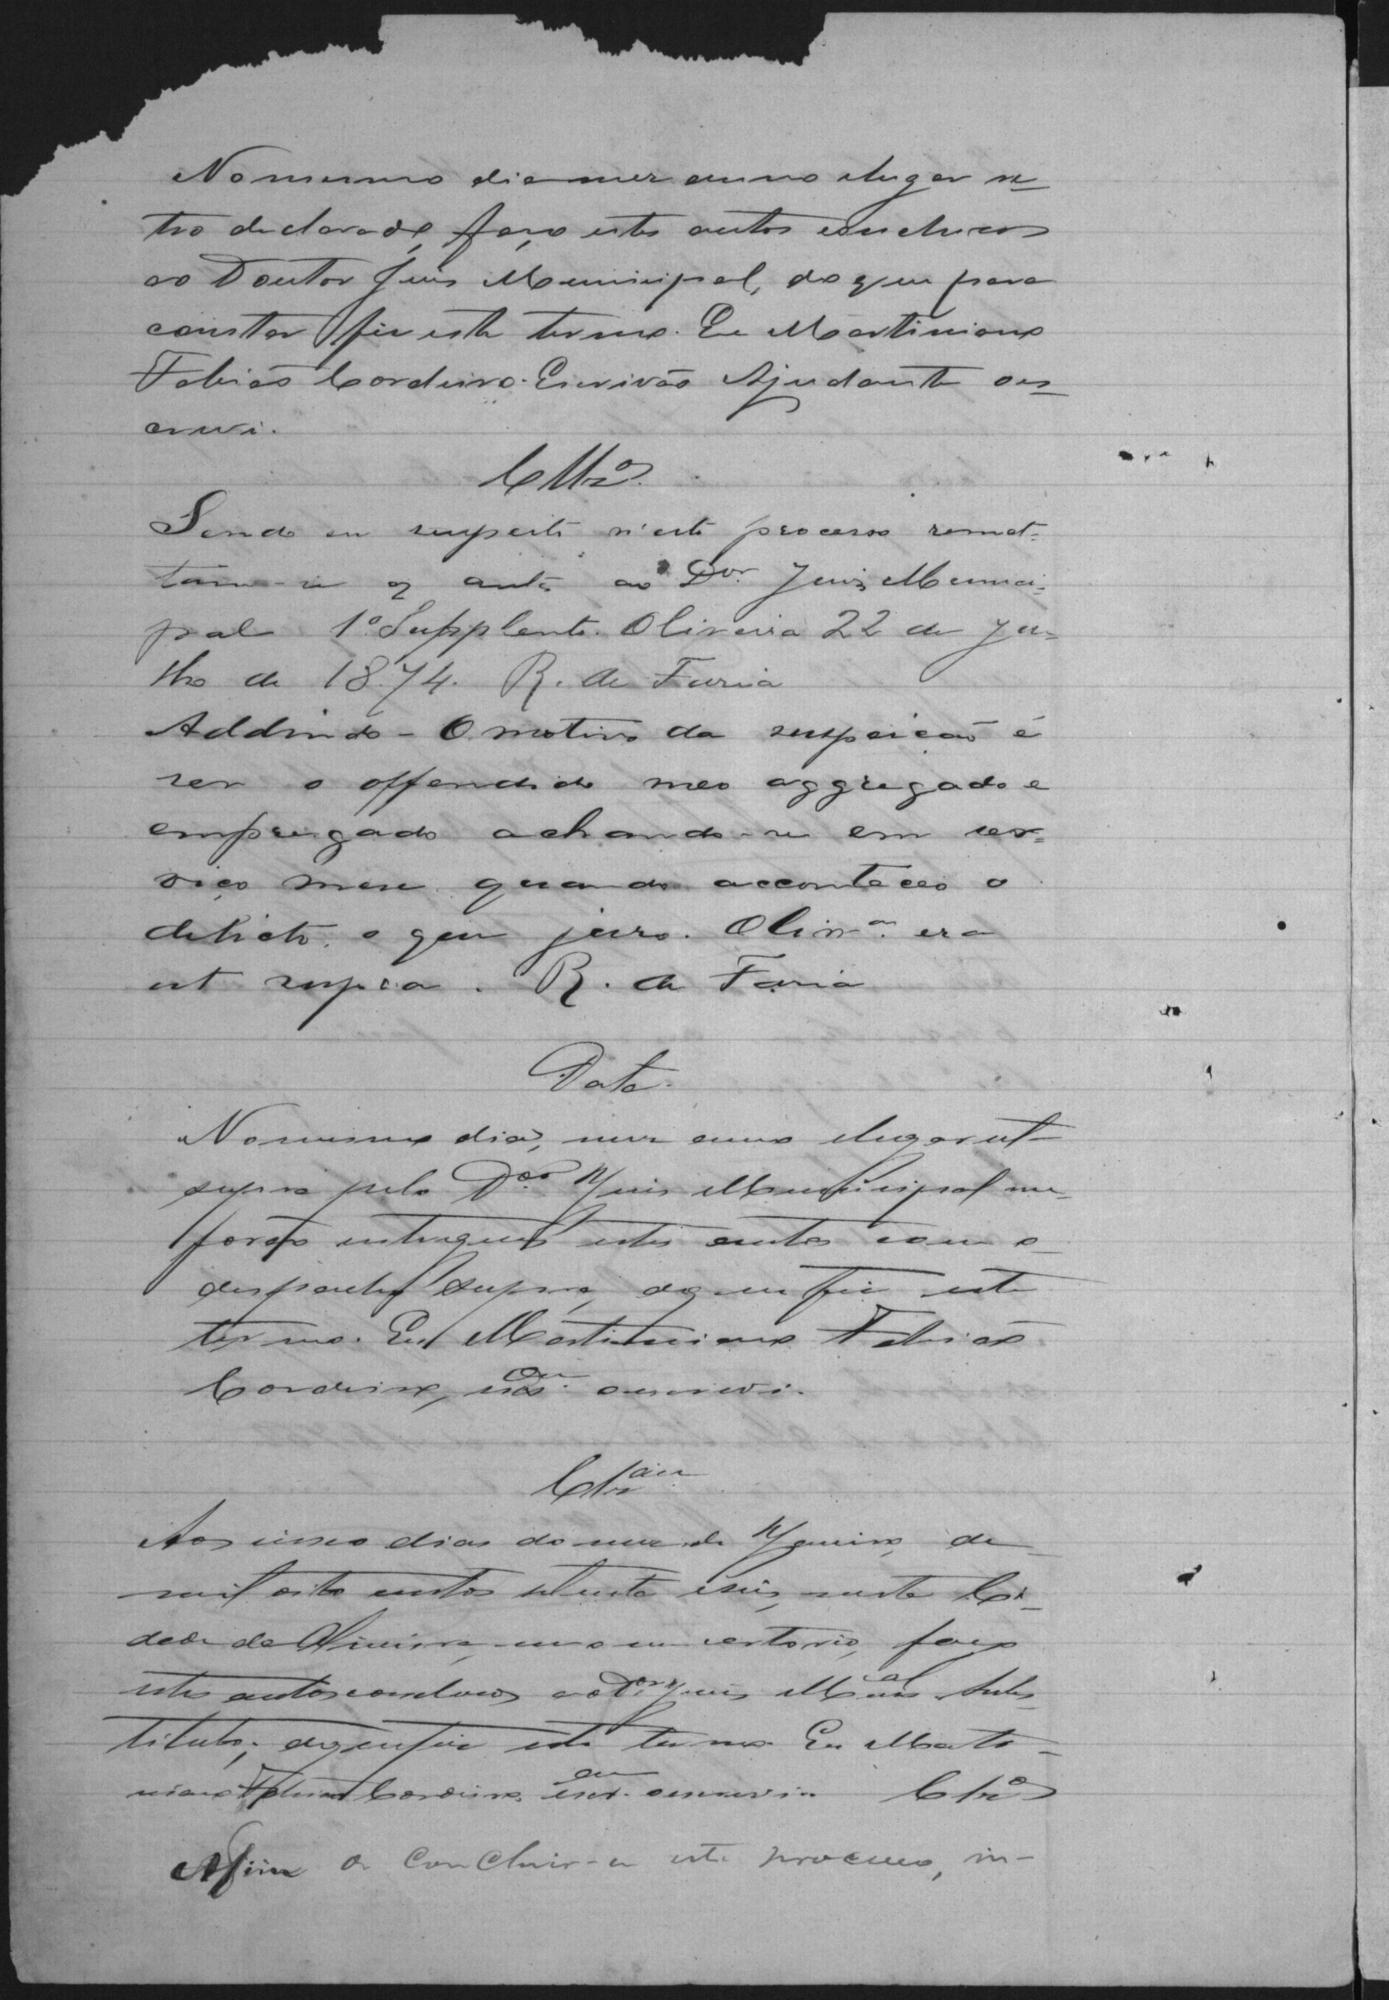 No mesmo dia mez anno e lugar re-
tro declarado, faço estes autos conclusos
ao Doutor Juis Municipal, do que para
constar fiz este termo. Eu Martiniano
Fabião Cordeiro. Escrivão Ajudante o es-
crevi.
Cllºs
Sendo eu suspeito n'este processo remet-
tam-se os autos ao Dor. Juiz Munici-
pal 1º Supplente. Oliveira 22 de Ju-
lho de 1874. R. de Faria
Addindo - O motivo da suspeicão é
ser o offendido meo aggregado e
empregado achando-se em ser-
viço meu quando acconteceo o
delicto, o que juro. Olivrª. era
ut supra. R. de Faria
Data.
No mesmo dia, mez anno e lugar ut
supra pelo Dor. Juis Municipal me
forão entregues estes autos com o
despacho supra, do que fiz este
termo. Eu Martiniano Fabião
Cordeiro, o escrevi.
Aos cinco dias do mez de Janeiro, de
mil oito centos setenta e seis, nesta Ci-
dade de Oliveira, em o meu cartorio, faço
estes autos conclusos ao Dor. Juis Mal Subs
tituto; do que fiz este termo Eu Marti-
niano Fabião Cordeiro o escrevi. Clºs
Afim de concluir-se este processo, in-